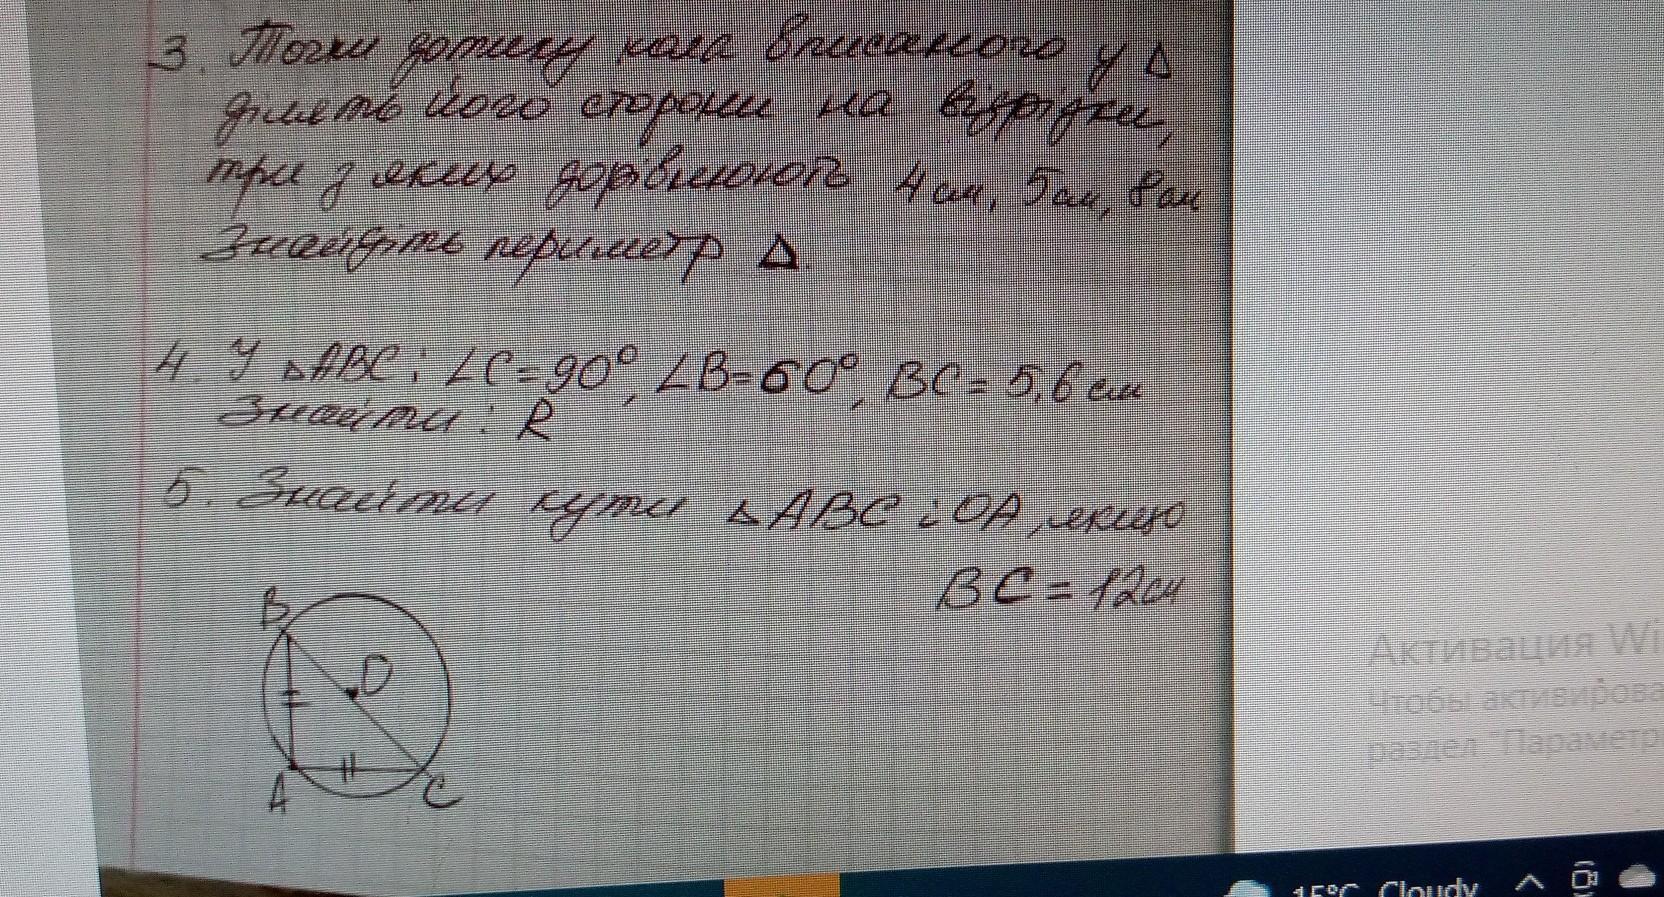 3. Точки дотику кола вписаного у Δ
ділять його сторони на відрізки,
три з яких дорівнюють 4 см, 5 см, 8 см
Знайдіть периметр Δ.
4. У ΔABC: ∠C = 90°, ∠B = 60°, BC = 5,6 см
Знайти: R
5. Знайти кути ΔABC і OA, якщо
BC = 12 см
B
O
A
C
Активация Wi
Чтобы активирова
раздел "Параметр
15°C Cloudy